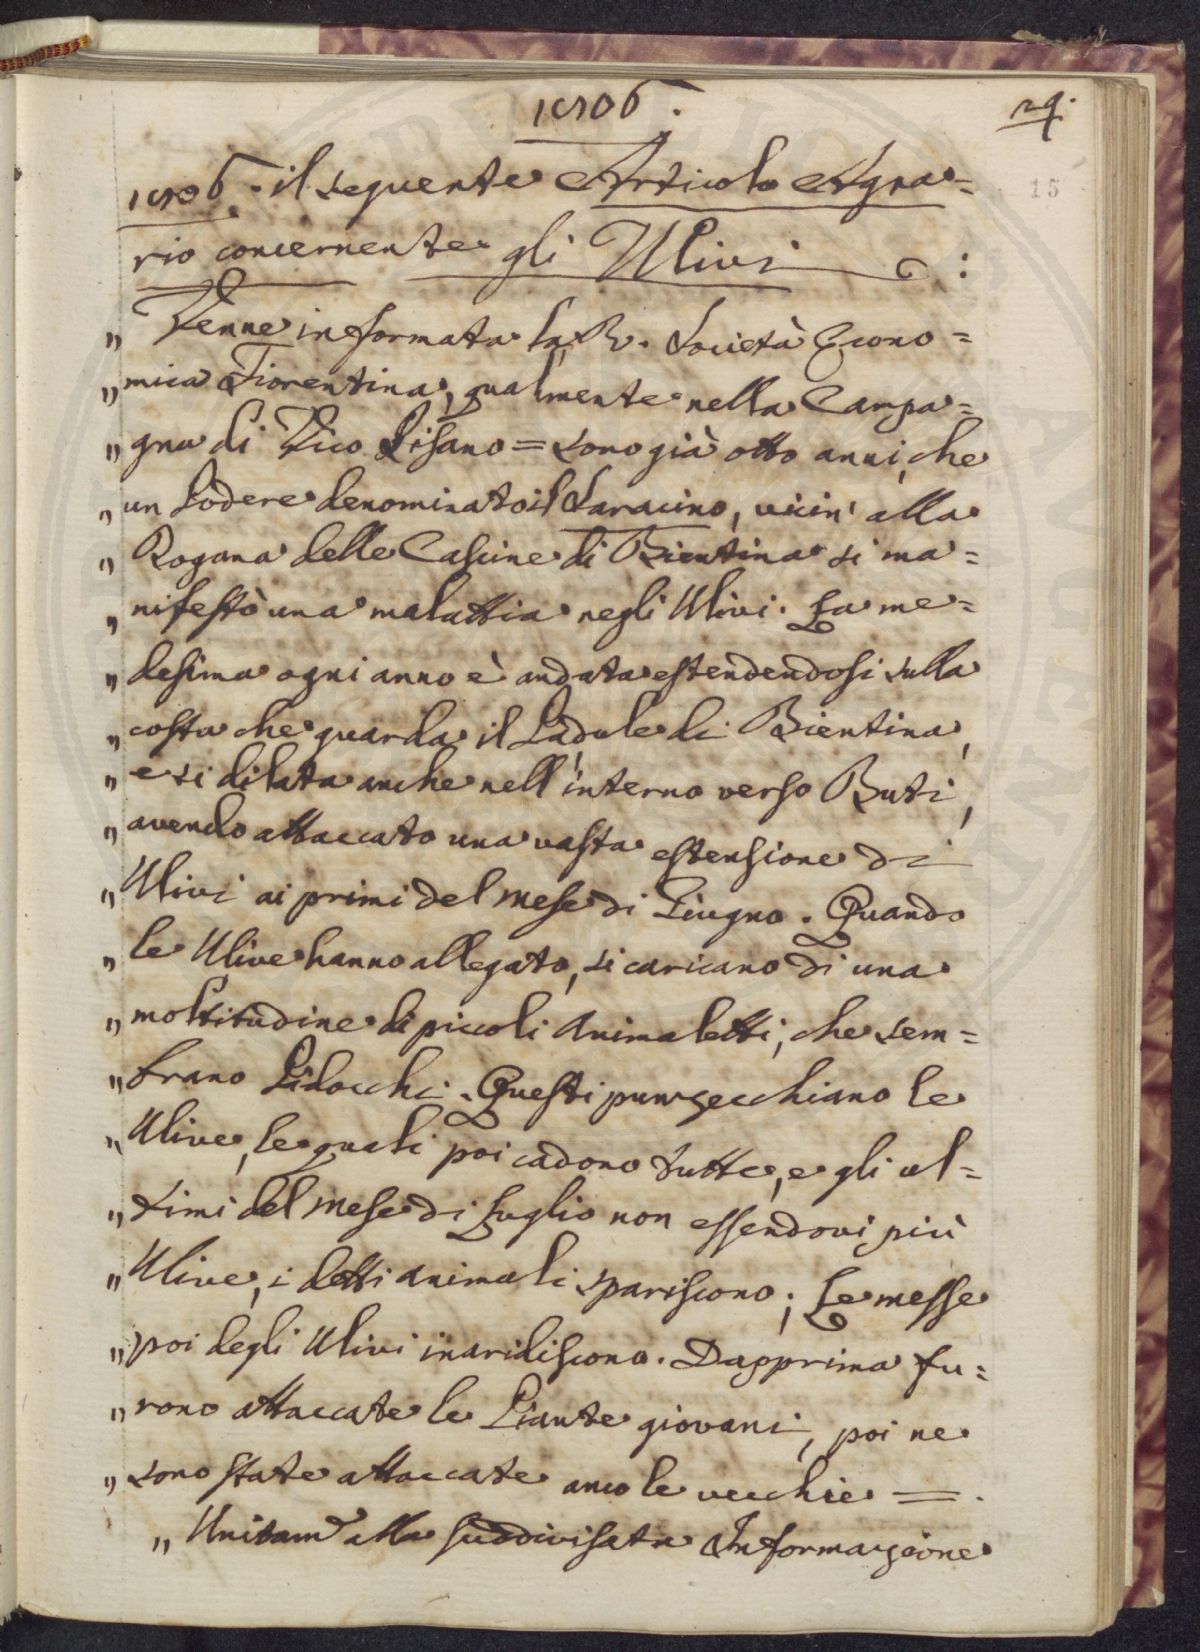 1806.
29.
15
1806. il seguente Articolo Agra=
rio concernente gli Ulivi :
„ Venne informata la R. Società Econo=
„ mica Fiorentina, qualmente nella Campa=
„ gna di Vico Pisano = sono già otto anni, che
„ un Podere denominato il Saracino, vicin' alla
„ Dogana delle Cascine di Bientina si ma=
„ nifestò una malattia negli Ulivi. La me=
„ desima ogni anno è andata estendendosi sulla
„ costa che guarda il Padule di Bientina,
„ e si dilata anche nell'interno verso Buti,
„ avendo attaccato una vasta estensione di
„ Ulivi ai primi del mese di Giugno. Quando
„ le Ulive hanno allegato, si caricano di una
„ moltitudine di piccoli Animaletti, che sem=
„ brano Pidocchi. Questi punzecchiano le
„ Ulive, le quali poi cadono tutte, e gli ul=
„ timi del mese di Luglio non essendovi più
„ Ulive, i detti animali spariscono; Le messe
„ poi degli Ulivi inaridiscono. Dapprima fu=
„ rono attaccate le Piante giovani, poi ne
„ sono state attaccate anco le vecchie =.
„ Unitam.e alla suddivisata Informazione